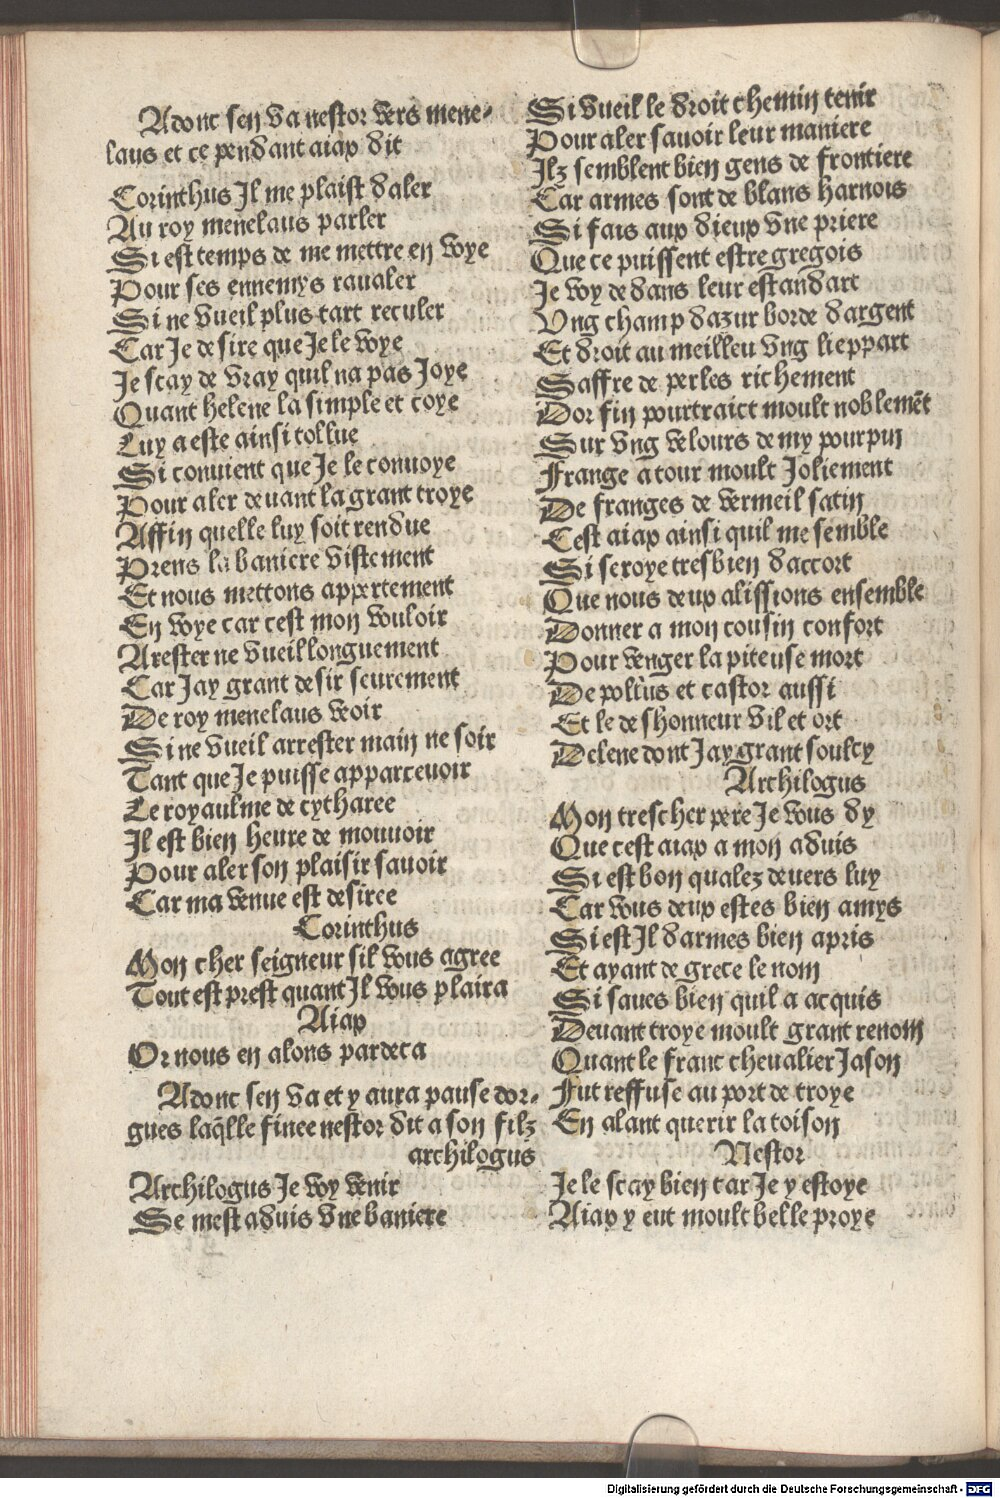 Adonc sen va nestor vers mene-
laus et ce pendant aiax dit
Corinthus Il me plaist daler
Au roy menelaus parler
Si est temps de me mettre en voye
Pour ses ennemys raualer
Si ne vueil plus tart reculer
Car Je desire que Je le voye
Je scay de vray quil na pas Joye
Quant helene la simple et coye
Luy a este ainsi tollue
Si conuient que Je le conuoye
Pour aler deuant la grant troye
Affin quelle luy soit rendue
Prens la baniere vistement
Et nous mettons appertement
En voye car cest mon vouloir
Arester ne vueil longuement
Car Jay grant desir seurement
De roy menelaus veoir
Si ne vueil arrester main ne soir
Tant que Je puisse apparceuoir
Le royaulme de cytharee
Il est bien heure de mouuoir
Pour aler son plaisir sauoir
Car ma venue est desiree
Corinthus
Mon cher seigneur sil vous agree
Tout est prest quant Il vous plaira
Aiax
Or nous en alons pardeca
Adonc sen va et y aura pause dor-
gues laq̃lle finee nestor dit a son filz
archilogus
Archilogus Je voy venir
Se mest aduis vne baniere
Si vueil le droit chemin tenir
Pour aler sauoir leur maniere
Ilz semblent bien gens de frontiere
Car armes sont de blans harnois
Si fais aux dieux vne priere
Que ce puissent estre gregois
Je voy dedans leur estandart
Vng champ dazur borde dargent
Et droit au meilleu vng lieppart
Saffre de perles richement
Dor fin pourtraict moult noblemẽt
Sur vng velours demy pourpin
Frange atour moult Joliement
De franges de vermeil satin
Cest aiax ainsi quil me semble
Si seroye tresbien daccort
Que nous deux alissions ensemble
Donner a mon cousin confort
Pour venger la piteuse mort
De pollus et castor aussi
Et le deshonneur vil et ort
Delene dont Jay grant soulcy
Archilogus
Mon trescher pere Je vous dy
Que cest aiax a mon aduis
Si est bon qualez deuers luy
Car vous deux estes bien amys
Si est Il darmes bien apris
Et ayant de grece le nom
Si saues bien quil a acquis
Deuant troye moult grant renom
Quant le franc cheualier Jason
Fut reffuse au port de troye
En alant querir la toison
Nestor
Je le scay bien car Je y estoye
Aiax y eut moult belle proye
Digitalisierung gefördert durch die Deutsche Forschungsgemeinschaft - DFG